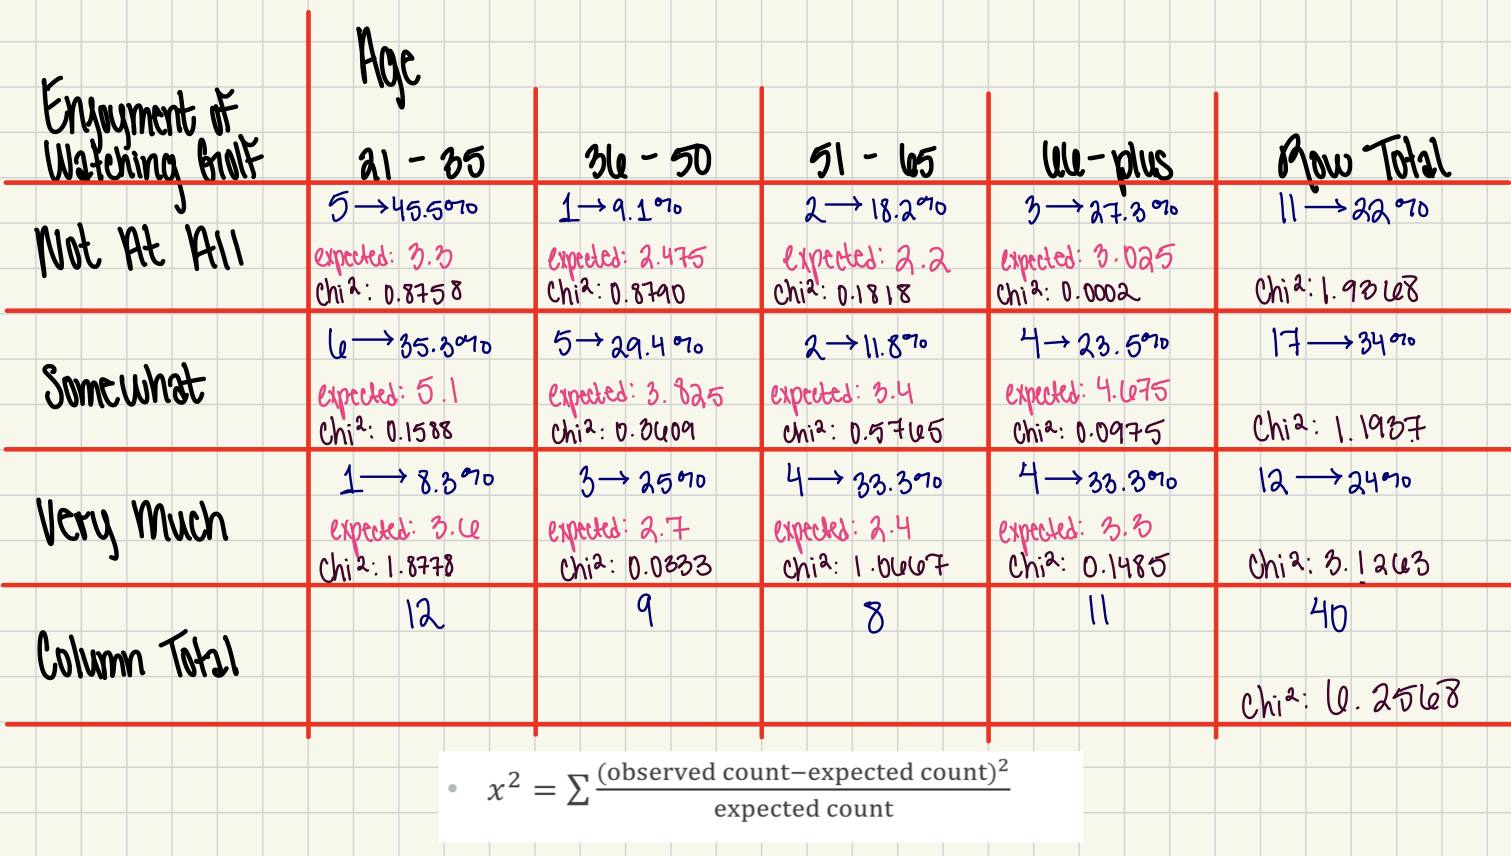 Age
Enjoyment of
Watching Golf
21 - 35
36 - 50
51 - 65
66-plus
Row Total
Not At All
5 → 45.5%
expected: 3.3
Chi²: 0.8758
1 → 9.1%
expected: 2.475
Chi²: 0.8790
2 → 18.2%
expected: 2.2
Chi²: 0.1818
3 → 27.3%
expected: 3.025
Chi²: 0.0002
11 → 22%
Chi²: 1.9368
Somewhat
6 → 35.3%
expected: 5.1
Chi²: 0.1588
5 → 29.4%
expected: 3.825
Chi²: 0.3609
2 → 11.8%
expected: 3.4
Chi²: 0.5765
4 → 23.5%
expected: 4.675
Chi²: 0.0975
17 → 34%
Chi²: 1.1937
Very Much
1 → 8.3%
expected: 3.6
Chi²: 1.8778
3 → 25%
expected: 2.7
Chi²: 0.0333
4 → 33.3%
expected: 2.4
Chi²: 1.0667
4 → 33.3%
expected: 3.3
Chi²: 0.1485
12 → 24%
Chi²: 3.1263
Column Total
12
9
8
11
40
Chi²: 6.2568
• x² = ∑ (observed count−expected count)²
expected count